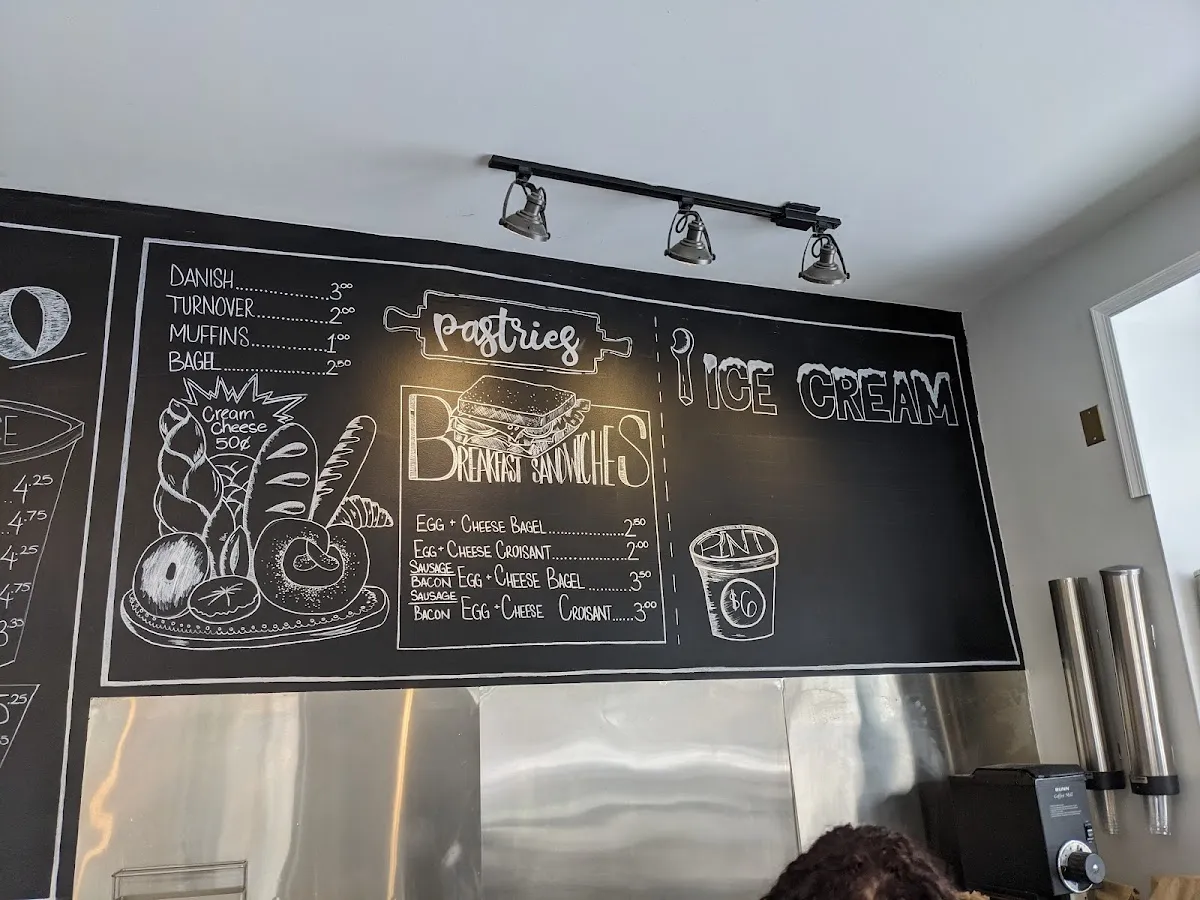 CE
4.25
4.75
4.25
4.75
3.35
5.25
DANISH..............3.00
TURNOVER...........2.00
MUFFINS.............1.00
BAGEL................2.50
Cream
Cheese
50¢
pastries
BREAKFAST SANDWICHES
EGG + CHEESE BAGEL...............2.50
EGG + CHEESE CROISANT..............2.00
SAUSAGE
BACON EGG + CHEESE BAGEL........3.50
SAUSAGE
BACON EGG + CHEESE CROISANT......3.00
ICE CREAM
PINT
$6
BUNN
Coffee Mill